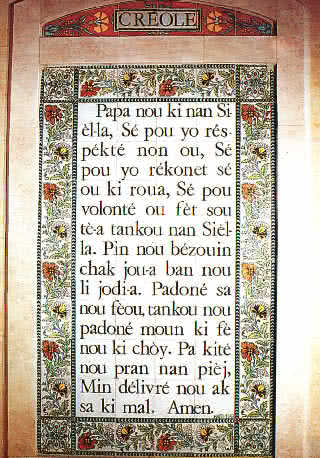 CRÉOLE
Papa nou ki nan Si-
èl-la, Sé pou yo rés-
pékté non ou, Sé
pou yo rékonet sé
ou ki roua, Sé pou
volonté ou fèt sou
tè-a tankou nan Sièl-
la. Pin nou bézouin
chak jou-a ban nou
li jodi-a. Padoné sa
nou fèou, tankou nou
padoné moun ki fè
nou ki chòy. Pa kité
nou pran nan pièj,
Min délivré nou ak
sa ki mal. Amen.